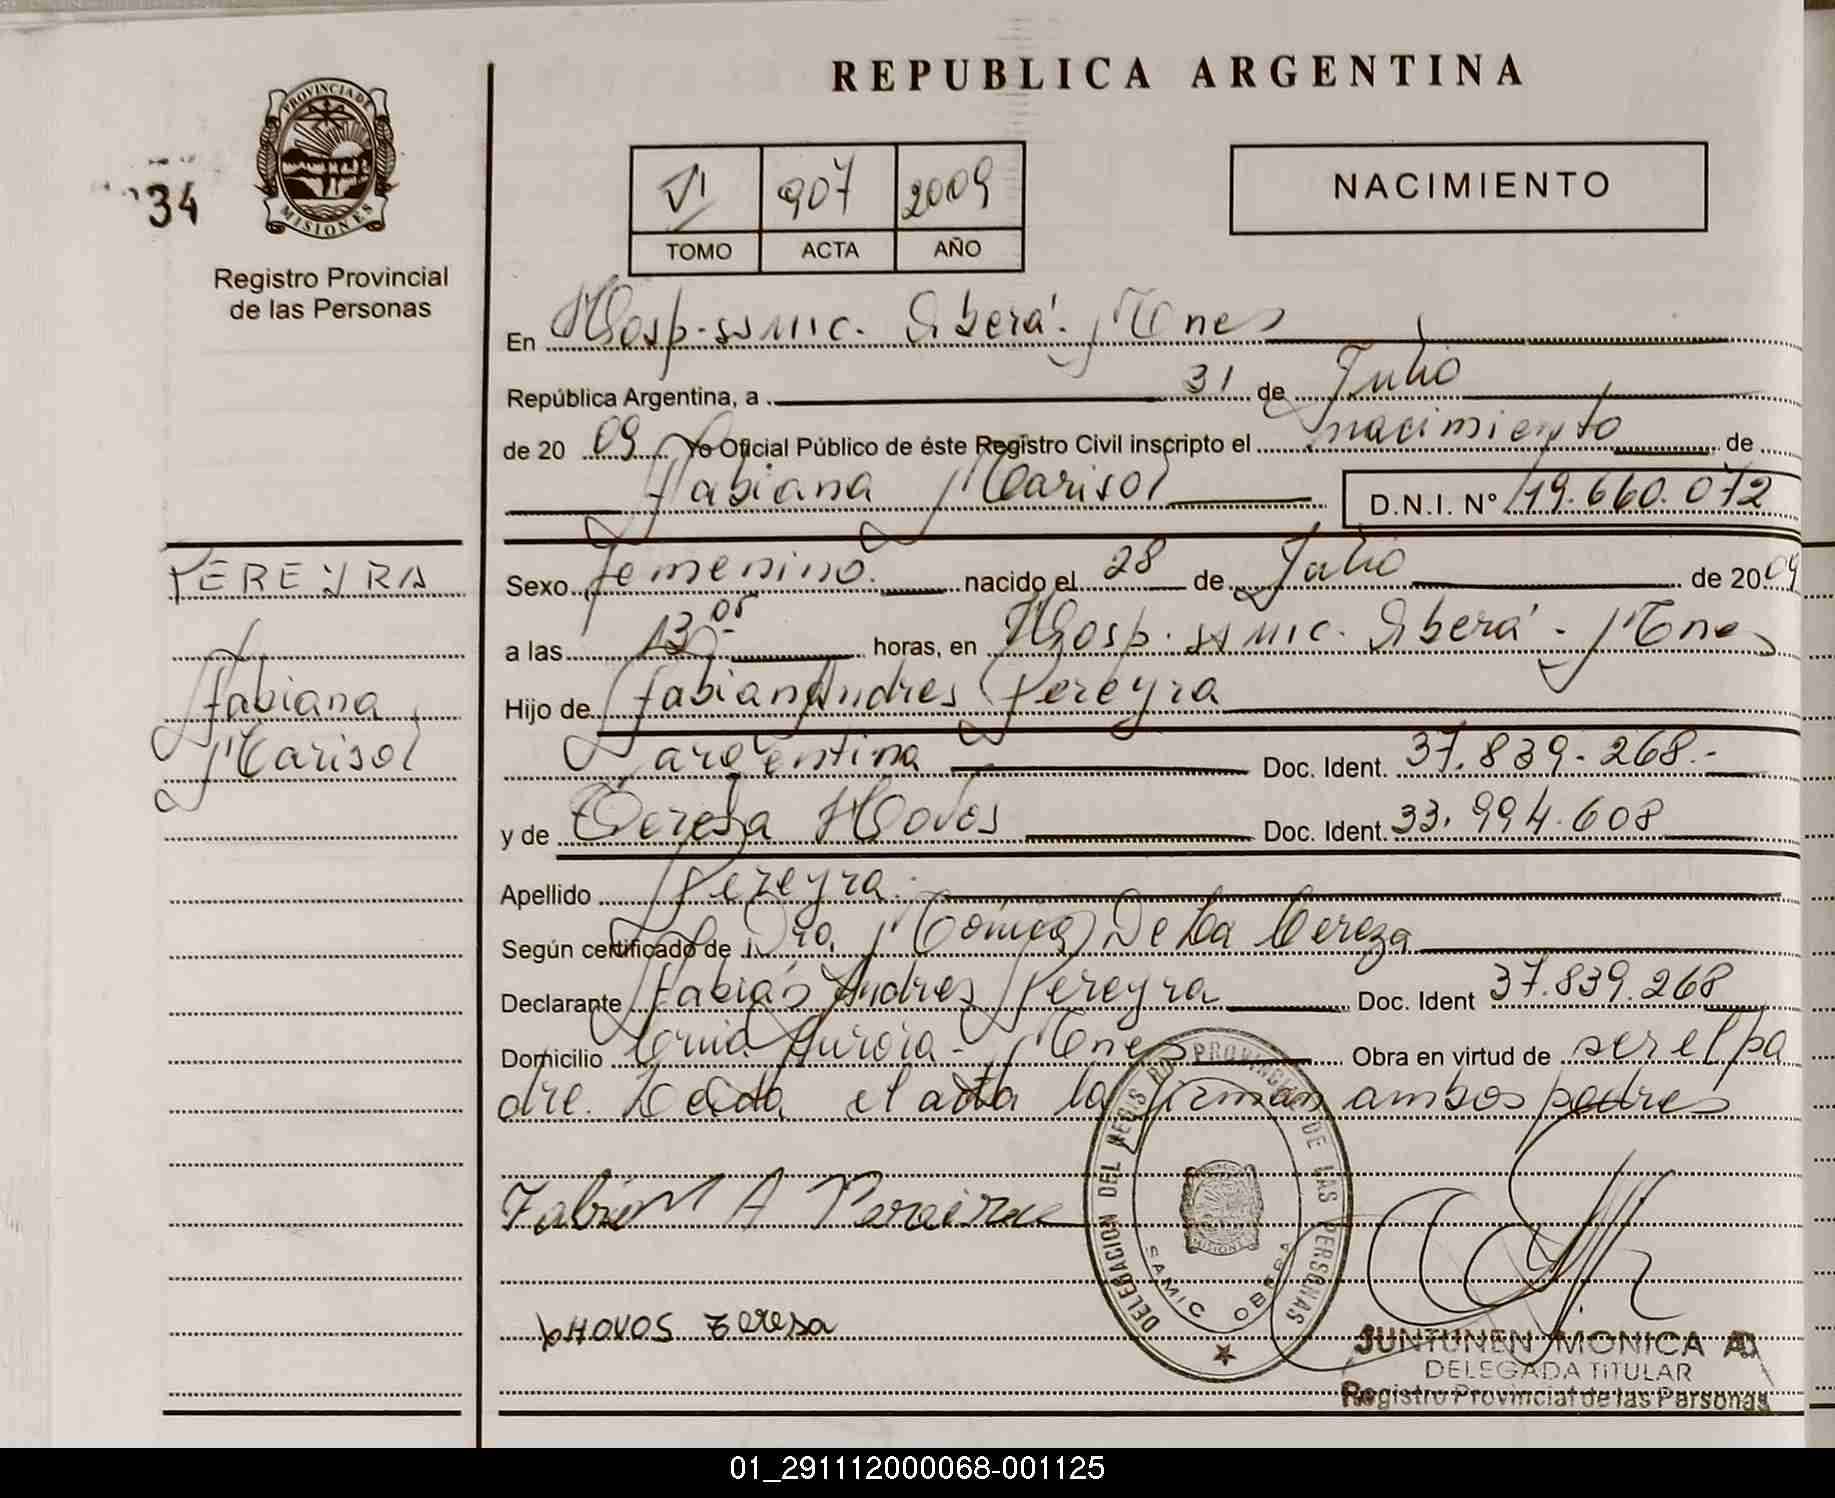 REPUBLICA ARGENTINA
PROVINCIA DE
MISIONES
34
Registro Provincial
de las Personas
VI 907 2009
TOMO ACTA AÑO
NACIMIENTO
En Hosp. ssmic. Oberá. Mnes
República Argentina, a 31 de Julio
de 20 09 Yo Oficial Público de éste Registro Civil inscripto el nacimiento de
Fabiana Marisol D.N.I. Nº 49.660.072
PEREYRA
Fabiana
Marisol
Sexo femenino. nacido el 28 de Julio de 20 09
a las 13 05 horas, en Hosp. ssmic. Oberá - Mnes
Hijo de Fabian Andres Pereyra
argentina Doc. Ident. 37.839.268.-
y de Teresa Hovos Doc. Ident. 33.994.608
Apellido Pereyra.
Según certificado de Dra. Mónica De La Cereza
Declarante Fabián Andres Pereyra Doc. Ident 37.839.268
Domicilio Aurora - Mnes Obra en virtud de ser el pa
dre. Leida el acta la firman ambos padres
Fabian A Pereira
HOVOS Teresa
DELEGACION DEL REGIS DO PROVINCIAL DE LAS PERSONAS
SAMIC OBERA
MISIONES
JUNTUNEN MONICA A
DELEGADA TITULAR
Registro Provincial de las Personas
01_291112000068-001125